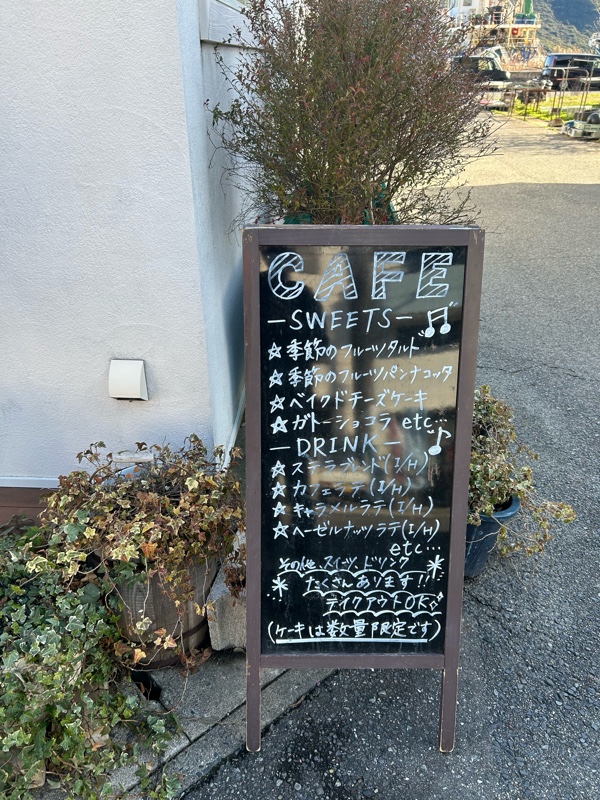 CAFE
－SWEETS－
☆季節のフルーツタルト
☆季節のフルーツパンナコッタ
☆ベイクドチーズケーキ
☆ガトーショコラ etc…
－DRINK－
☆ステラブレンド(I/H)
☆カフェラテ(I/H)
☆キャラメルラテ(I/H)
☆ヘーゼルナッツラテ(I/H)
etc…
その他、スイーツ、ドリンク
たくさんあります!!
テイクアウトOK
(ケーキは数量限定です)